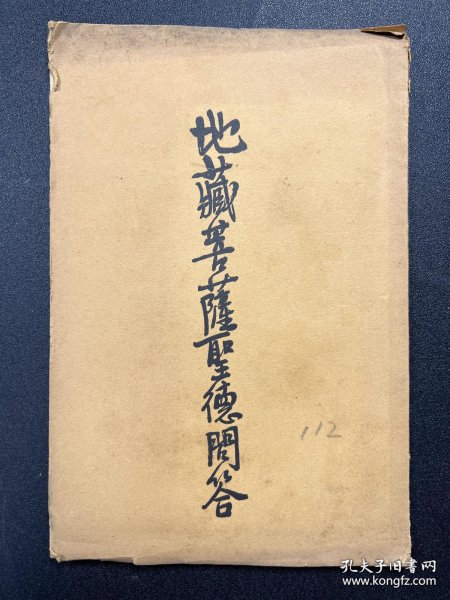 地藏菩薩聖德問答
112
孔夫子旧书网
www.kongfz.com